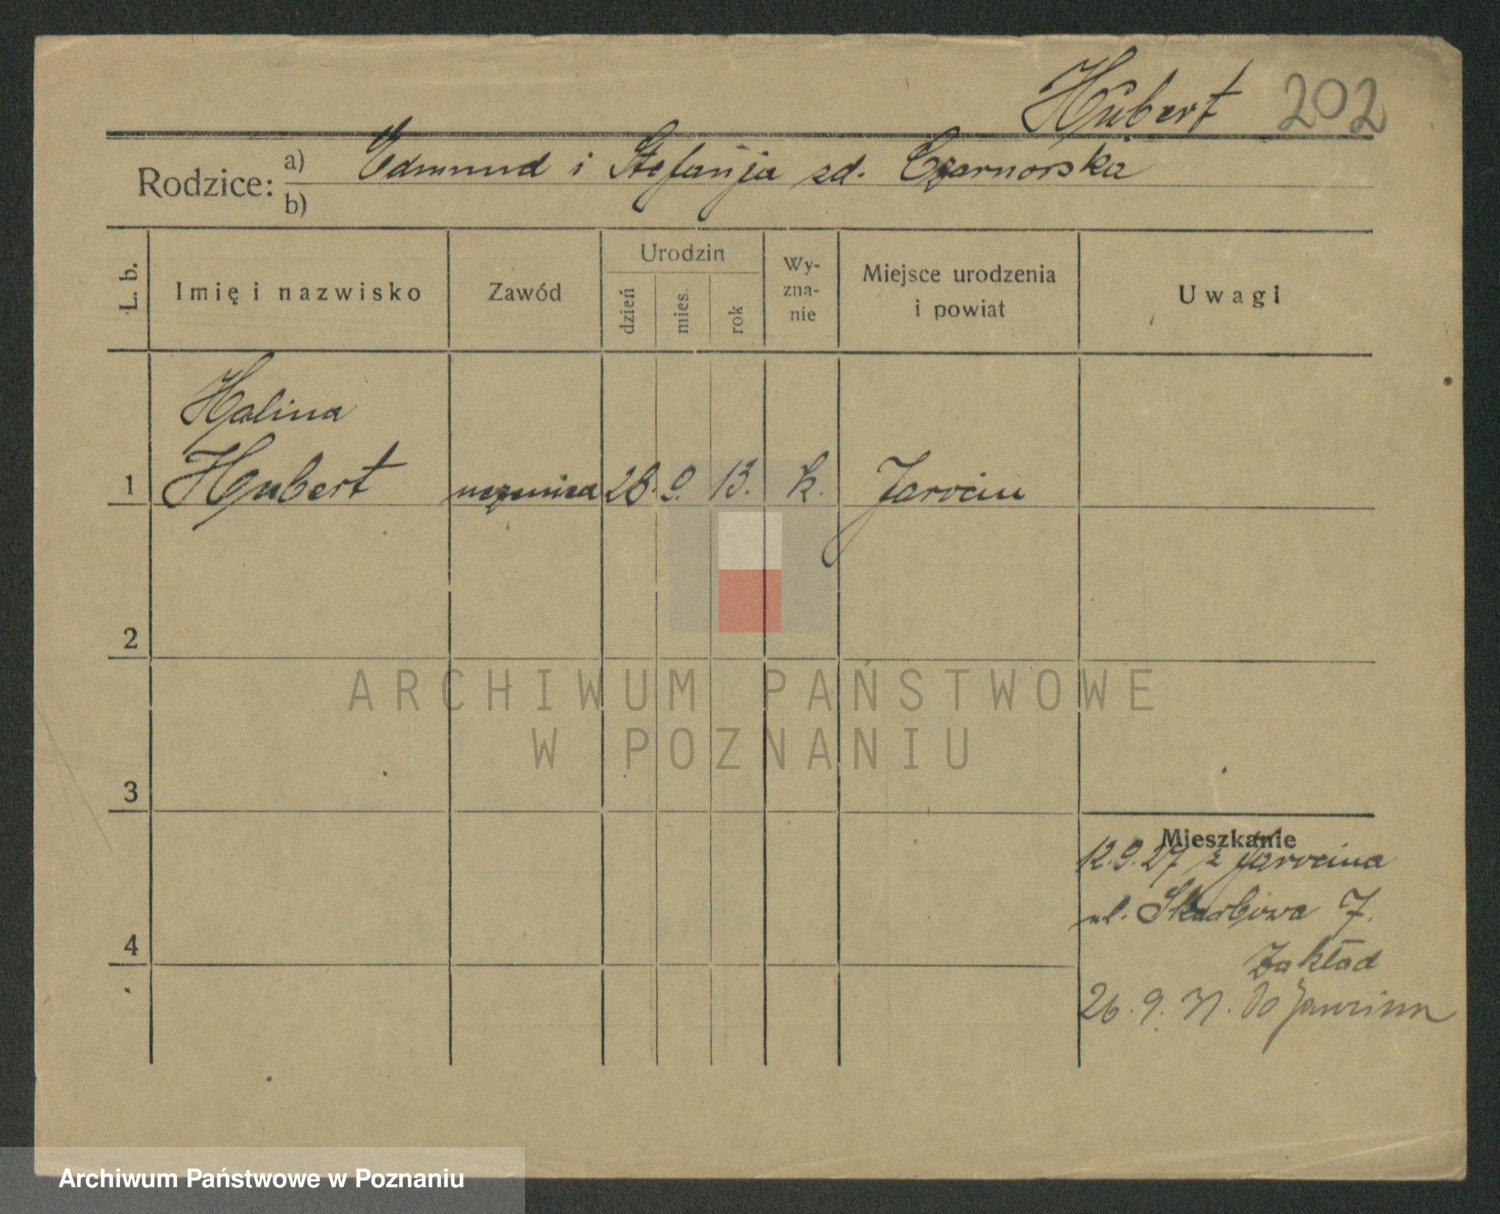 Hubert 202
Rodzice: a) Edmund i Stefanja zd. Czarnorska
b)
L. b.
Imię i nazwisko
Zawód
Urodzin
dzień
mies.
rok
Wy-
zna-
nie
Miejsce urodzenia
i powiat
Uwagi
Halina
1 Hubert uczenica 28. 9. 13. k. Jarocin
2
ARCHIWUM PAŃSTWOWE
W POZNANIU
3
Mieszkanie
12.9.27 z Jarocina
ul. Skarbowa 7.
Zakład
4
26. 9. 31. do Jarocina
Archiwum Państwowe w Poznaniu